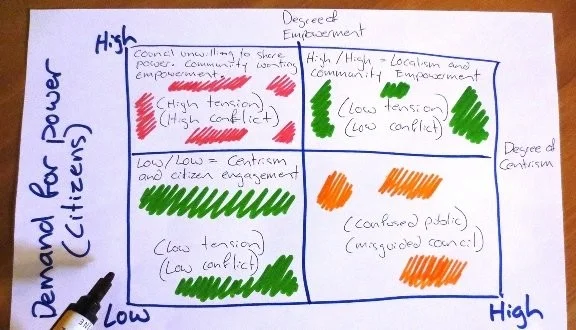 Degree of
Empowerment
High
Council unwilling to share
power. Community wanting
empowerment.
(High tension)
(High conflict)
High/High = Localism and
community Empowerment
(Low tension)
(Low conflict)
Demand for power
(Citizens)
Degree of
Centrism
Low/Low = Centrism
and citizen engagement
(Low tension)
(Low conflict)
(Confused public)
(misguided council)
Low
High